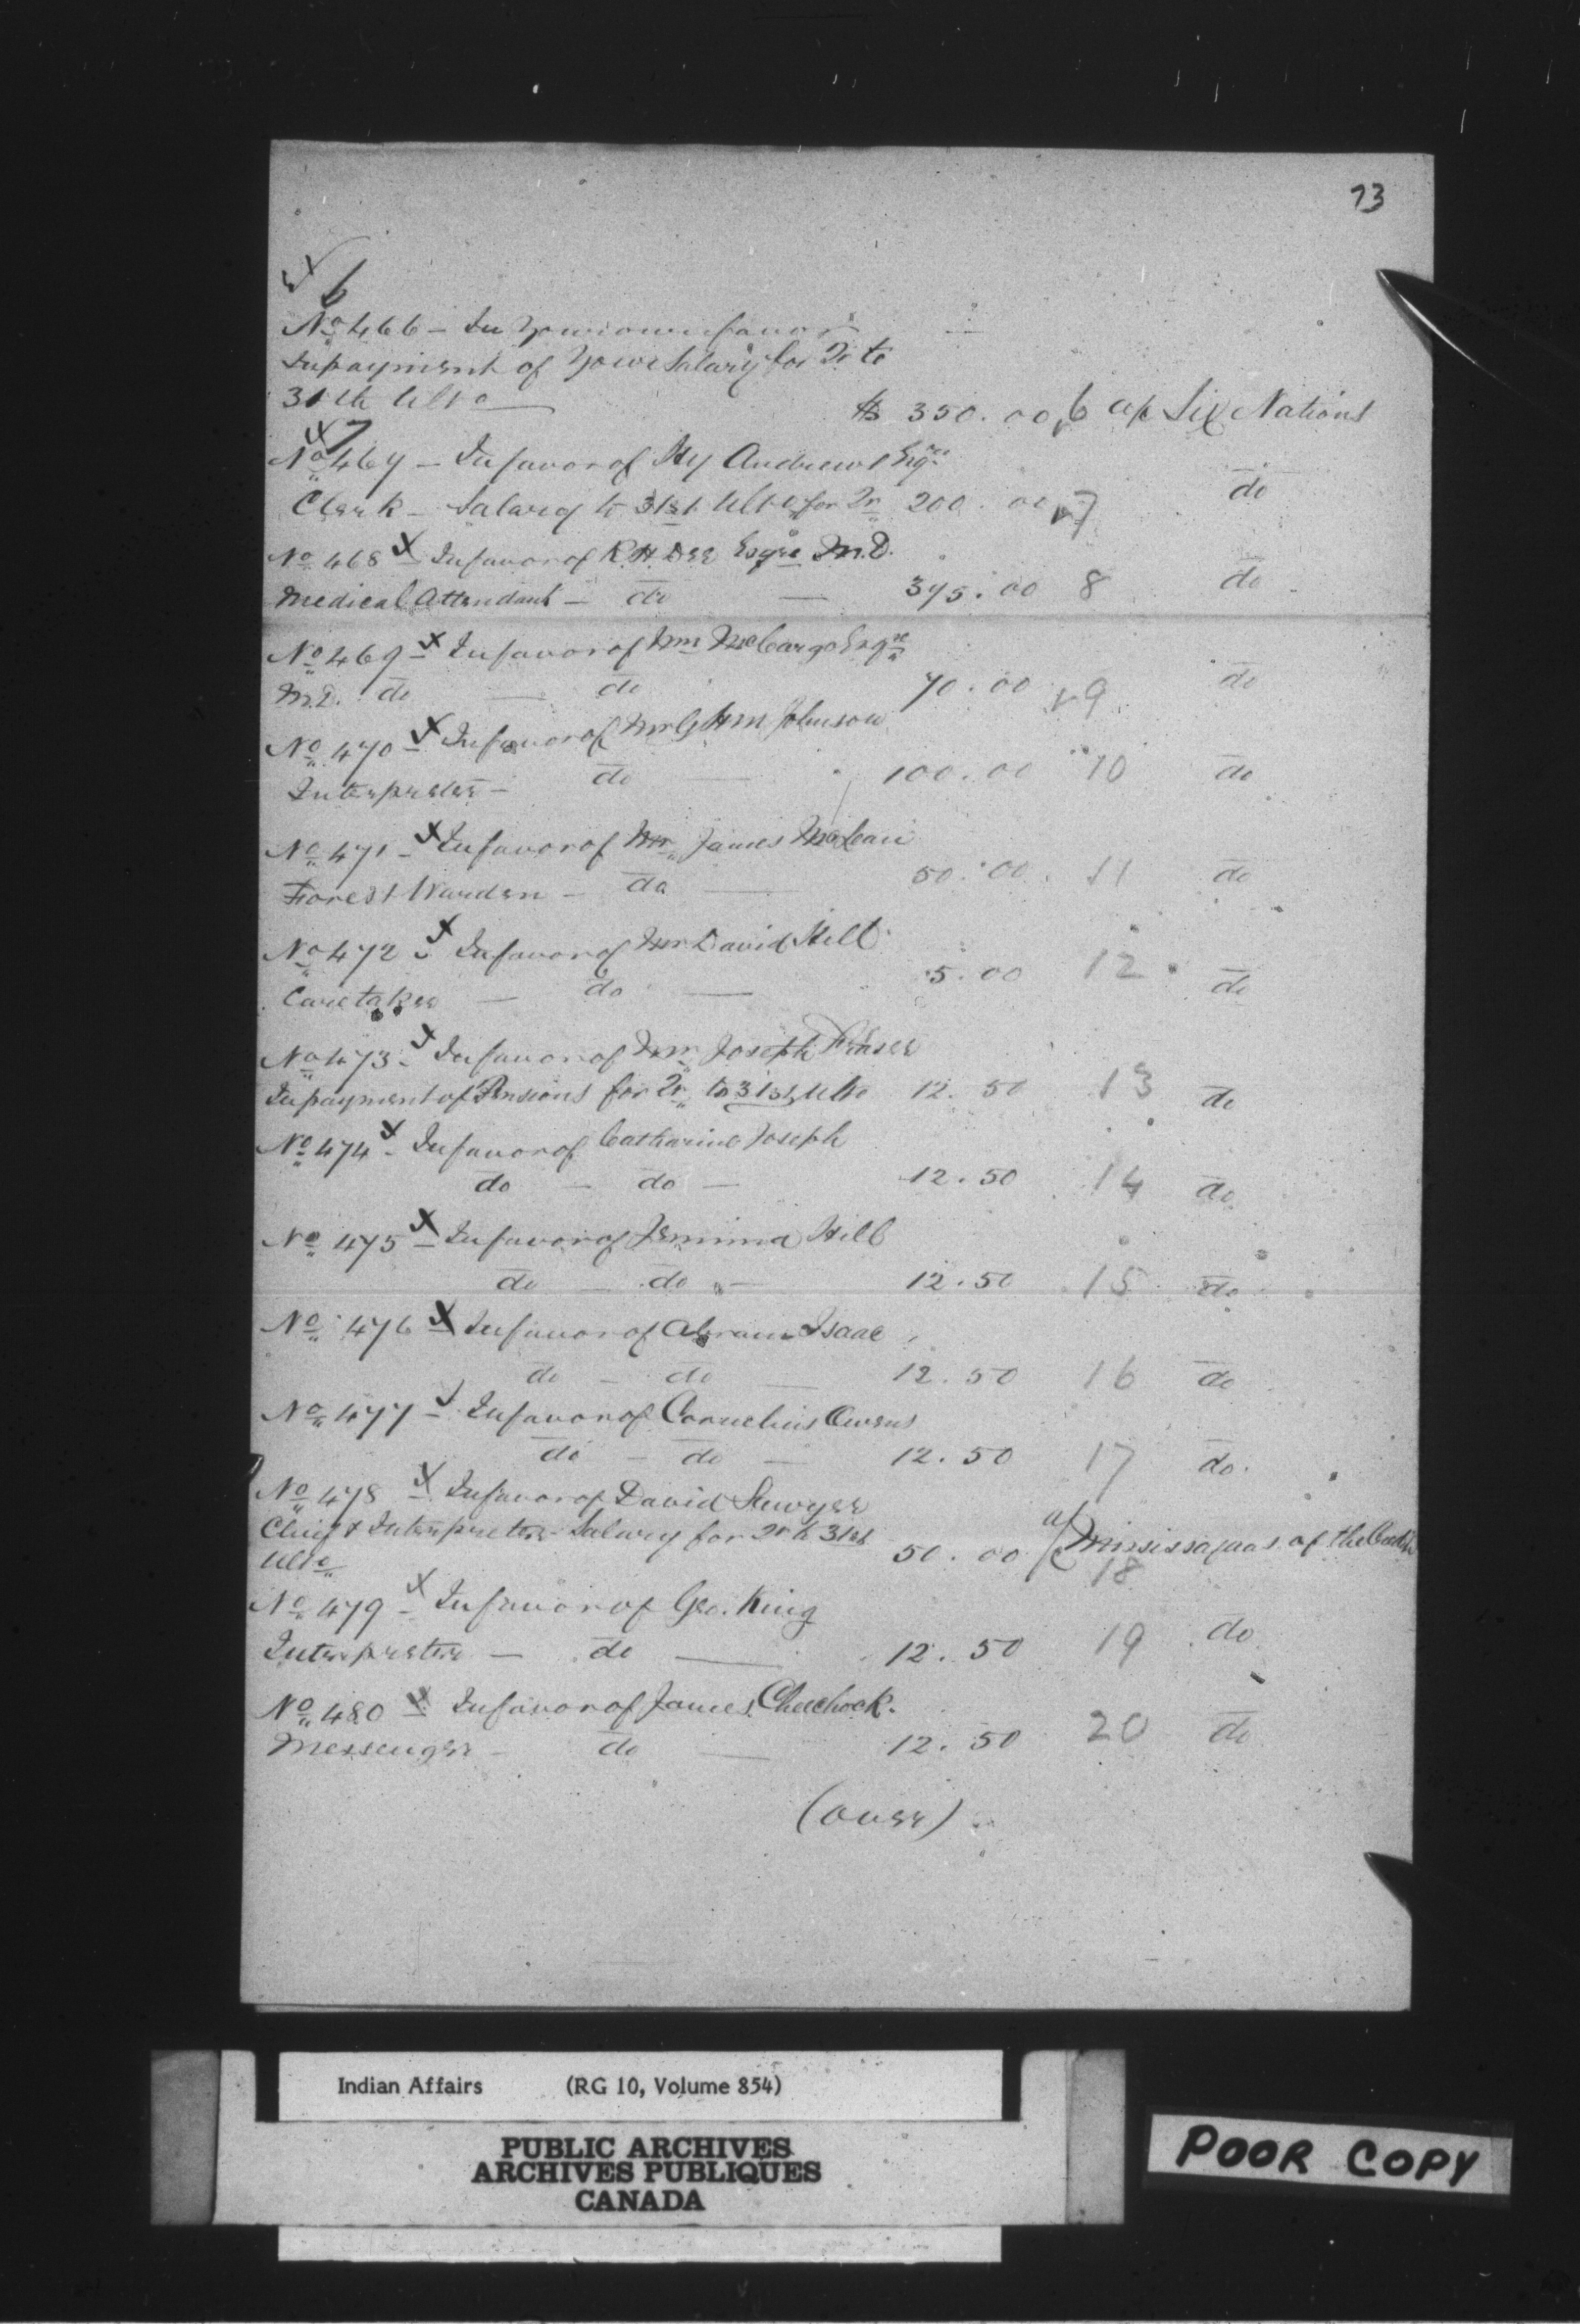 73
x 6
No 466 - In Your own favor
In payment of Your Salary for Qr to
31st Ulto
$ 350.00 6 a/c Six Nations
x 7
No 467 - In favor of Hy Andrews Esqre
Clerk - Salary to 31st Ulto for Qr 200.00 7 do
No 468 x In favor of R. H. Dee Esqre M.D.
Medical Attendant - do — 375.00 8 do
No 469 x In favor of Wm McCargo Esqre
M.D. do — do 70.00 9 do
No 470 x In favor of Mr G. Hm Johnson
Interpreter - do — 100.00 10 do
No 471 - x In favor of Mr James McLean
Forest Warden - do — 50.00 11 do
No 472 x In favor of Mr David Hill
Caretaker — do — 5.00 12 do
No 473 - x In favor of Mr Joseph Fraser
In payment of Pensions for Qr to 31st Ulto 12.50 13 do
No 474 x - In favor of Catharine Joseph
do — do — 12.50 14 do
No 475 x - In favor of Jemima Hill
do — do — 12.50 15 do
No 476 x In favor of Abram Isaac
do - do — 12.50 16 do
No 477 x - In favor of Cornelius Owens
do - do — 12.50 17 do.
No 478 x - In favor of David Sawyer
Chief & Interpreter - Salary for Qr to 31st
Ulto
50.00 a/c Mississaguas of the Credit
18
No 479 x - In favor of Geo. King
Interpreter — do — 12.50 19 do
No 480 x In favor of James Chechock.
Messenger - do — 12.50 20 do
(over)
Indian Affairs (RG 10, Volume 854)
PUBLIC ARCHIVES
ARCHIVES PUBLIQUES
CANADA
POOR COPY